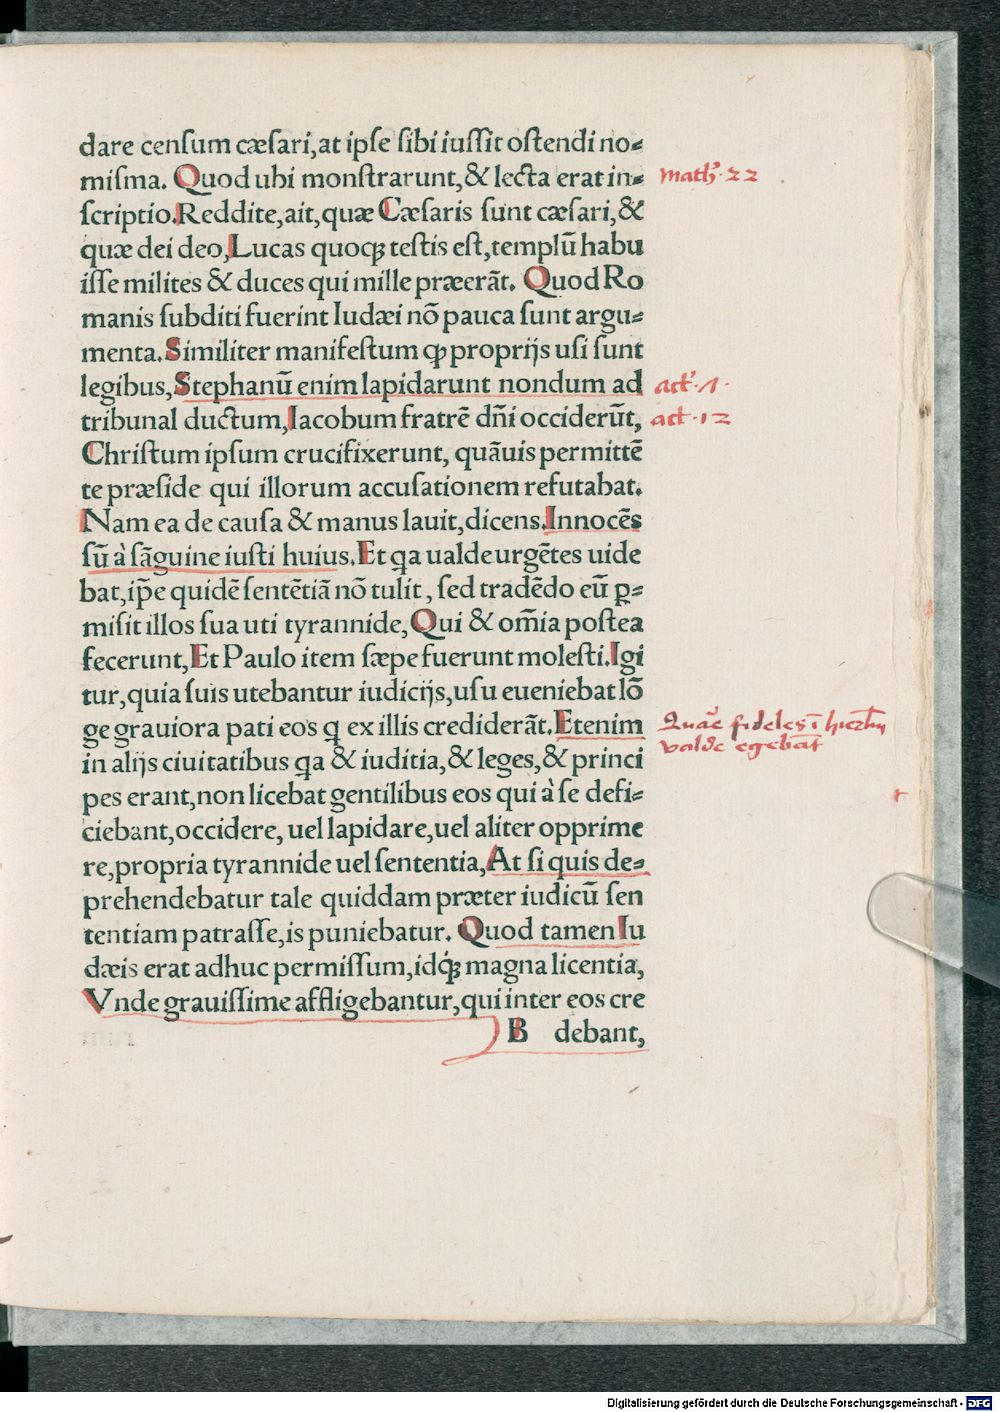 dare cenſum cæſari,at ipſe ſibi iuſſit oſtendi no⸗
miſma. Quod ubi monſtrarunt,& lecta erat in⸗
ſcriptio.Reddite,ait,quæ Cæſaris ſunt cæſari,&
quæ dei deo,Lucas quoqꝫ teſtis eſt,templū habu
iſſe milites & duces qui mille præerāt. Quod Ro
manis ſubditi fuerint Iudæi nō pauca ſunt argu⸗
menta.Similiter manifeſtum ꝙ proprijs uſi ſunt
legibus,Stephanū enim lapidarunt nondum ad
tribunal ductum,Iacobum fratrē dn̄i occiderūt,
Chriſtum ipſum crucifixerunt, quāuis permittē
te præſide qui illorum accuſationem refutabat.
Nam ea de cauſa & manus lauit,dicens.Innocēs
ſū à ſāguine iuſti huius.Et qa ualde urgētes uide
bat,ip̄e quidē ſentētiā nō tulit, ſed tradēdo eū ꝑ⸗
miſit illos ſua uti tyrannide,Qui & om̄ia poſtea
fecerunt,Et Paulo item ſæpe fuerunt moleſti.Igi
tur,quia ſuis utebantur iudicijs,uſu eueniebat lō
ge grauiora pati eos q ex illis crediderāt.Etenim
in alijs ciuitatibus qa & iuditia,& leges,& princi
pes erant,non licebat gentilibus eos qui à ſe defi⸗
ciebant,occidere, uel lapidare,uel aliter opprime
re,propria tyrannide uel ſententia,At ſi quis de⸗
prehendebatur tale quiddam præter iudicū ſen
tentiam patraſſe,is puniebatur. Quod tamen Iu
dæis erat adhuc permiſſum,idqꝫ magna licentia,
Vnde grauiſſime affligebantur,qui inter eos cre
B debant,
math. 22
act. 12
valde egebāt
Digitalisierung gefördert durch die Deutsche Forschungsgemeinschaft - DFG